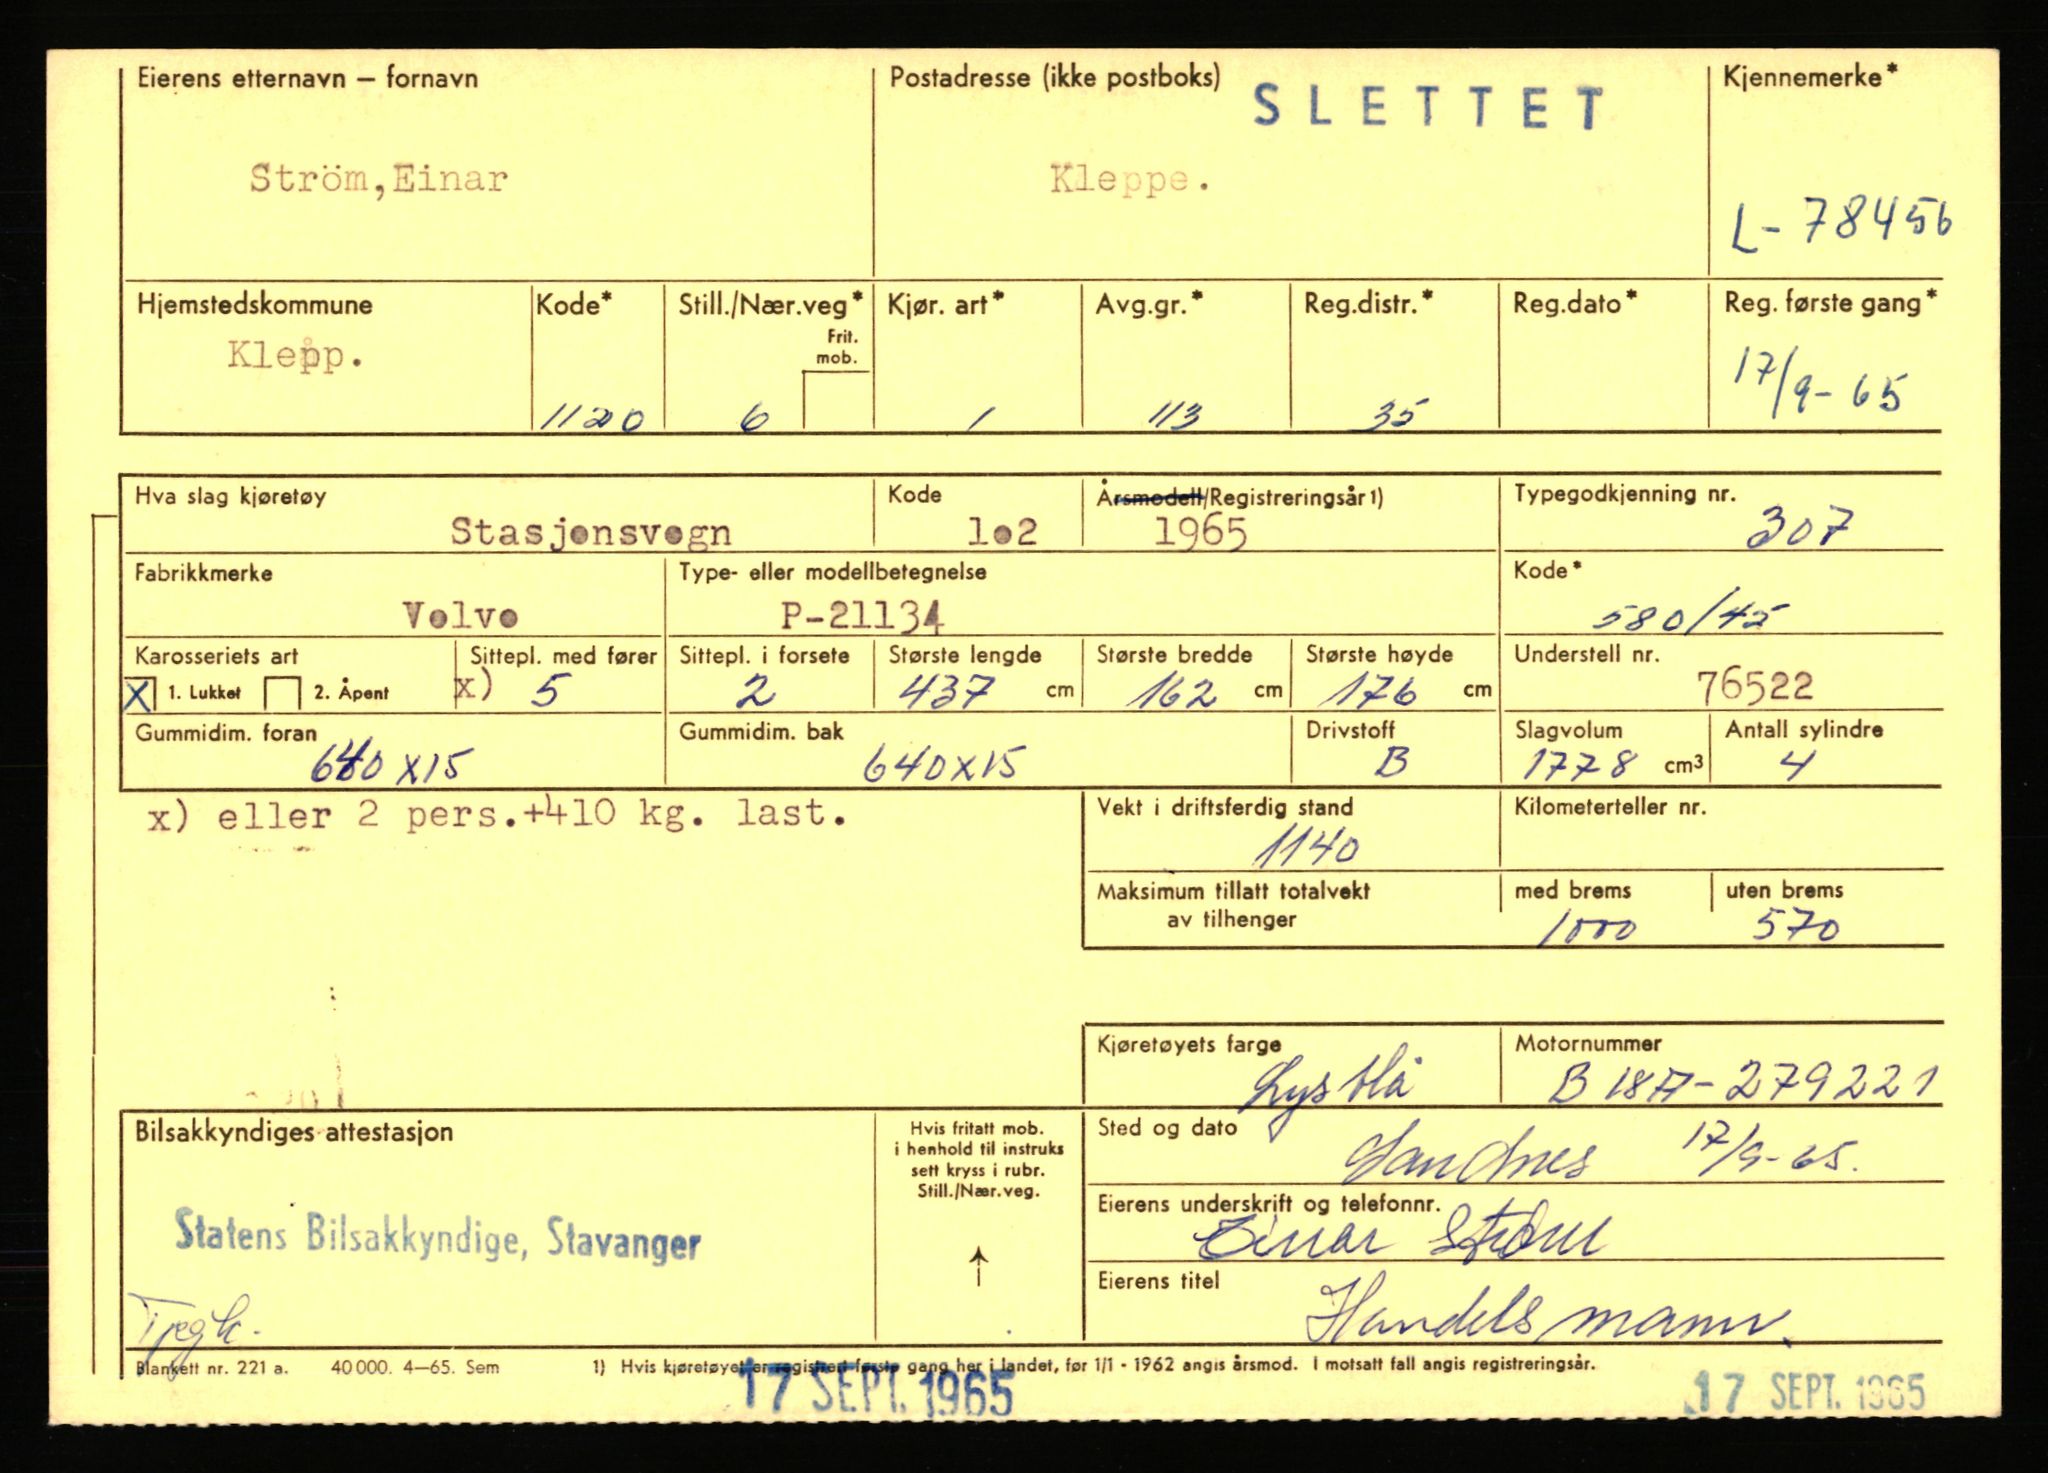 Eierens etternavn – fornavn
Ström, Einar
Postadresse (ikke postboks)
SLETTET
Kleppe.
Kjennemerke*
L-78456
Hjemstedskommune
Klepp.
Kode*
1120
Still./Nær.veg*
Frit.
mob.
6
Kjør. art*
1
Avg.gr.*
113
Reg.distr.*
35
Reg.dato*
Reg. første gang*
17/9-65
Hva slag kjøretøy
Stasjonsvogn
Kode
1o2
Årsmodell/Registreringsår 1)
1965
Typegodkjenning nr.
307
Fabrikkmerke
Volvo
Type- eller modellbetegnelse
P-21134
Kode*
580/45
Karosseriets art
X 1. Lukket 2. Åpent
Sittepl. med fører
x) 5
Sittepl. i forsete
2
Største lengde
437 cm
Største bredde
162 cm
Største høyde
176 cm
Understell nr.
76522
Gummidim. foran
640x15
Gummidim. bak
640x15
Drivstoff
B
Slagvolum
1778 cm3
Antall sylindre
4
x) eller 2 pers.+410 kg. last.
Vekt i driftsferdig stand
1140
Kilometerteller nr.
Maksimum tillatt totalvekt
av tilhenger
med brems
1000
uten brems
570
Kjøretøyets farge
Lysblå
Motornummer
B18A-279221
Bilsakkyndiges attestasjon
Statens Bilsakkyndige, Stavanger
Hvis fritatt mob.
i henhold til instruks
sett kryss i rubr.
Still./Nær.veg.
Sted og dato
Sandnes 17/9-65.
Eierens underskrift og telefonnr.
Einar Ström
Eierens titel
Handelsmann.
Blankett nr. 221 a. 40 000. 4–65. Sem
1) Hvis kjøretøyet er registrert første gang her i landet, før 1/1 - 1962 angis årsmod. I motsatt fall angis registreringsår.
17 SEPT. 1965
17 SEPT. 1965